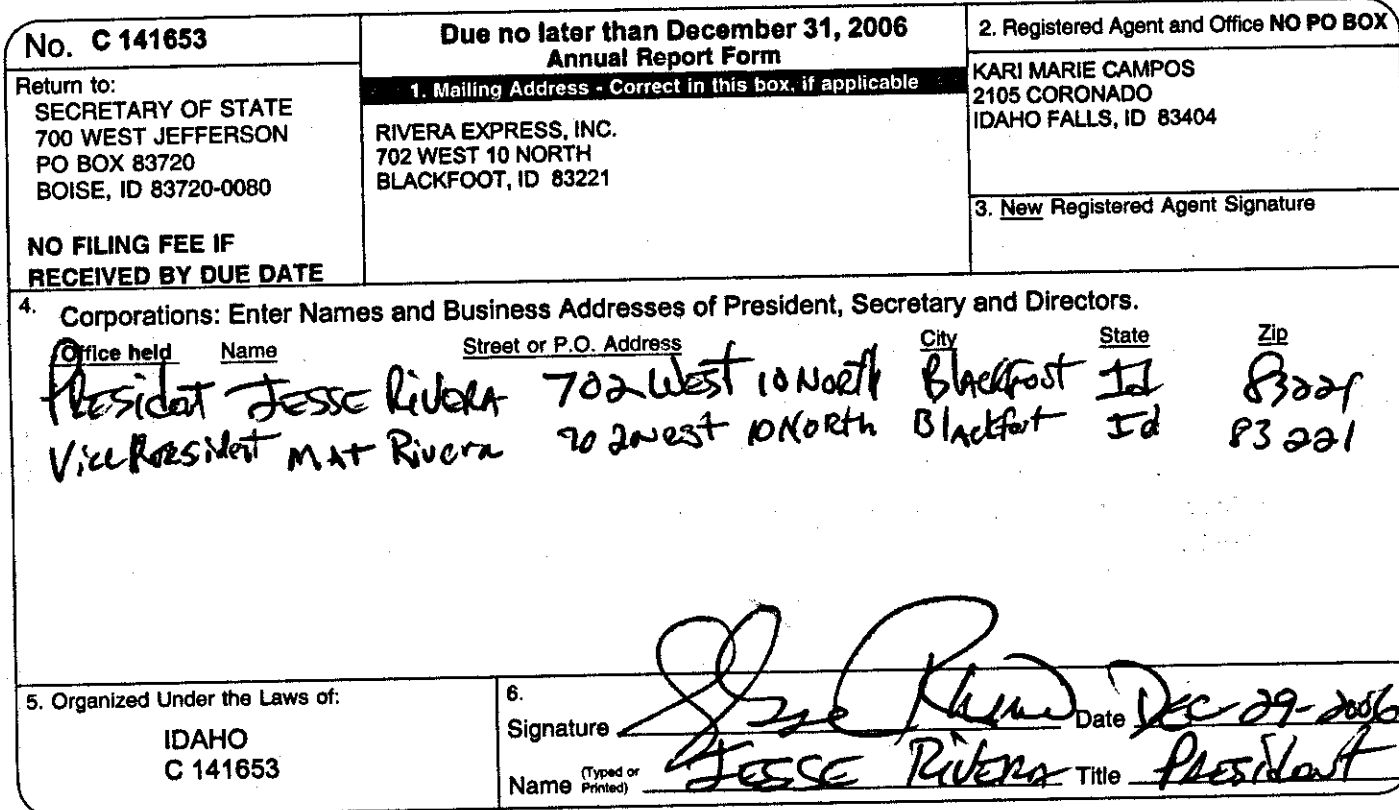 No. C 141653
Return to:
SECRETARY OF STATE
700 WEST JEFFERSON
PO BOX 83720
BOISE, ID 83720-0080
NO FILING FEE IF
RECEIVED BY DUE DATE
Due no later than December 31, 2006
Annual Report Form
1. Mailing Address - Correct in this box, if applicable
RIVERA EXPRESS, INC.
702 WEST 10 NORTH
BLACKFOOT, ID 83221
2. Registered Agent and Office NO PO BOX
KARI MARIE CAMPOS
2105 CORONADO
IDAHO FALLS, ID 83404
3. New Registered Agent Signature
4. Corporations: Enter Names and Business Addresses of President, Secretary and Directors.
Office held Name Street or P.O. Address City State Zip
President JESSE RIVERA 702 West 10 North Blackfoot Id 83221
Vice President MAT Rivera 702 West 10 North Blackfoot Id 83221
5. Organized Under the Laws of:
IDAHO
C 141653
6.
Signature Jesse Rivera Date Dec-29-2006
Name (Typed or Printed) JESSE RIVERA Title President